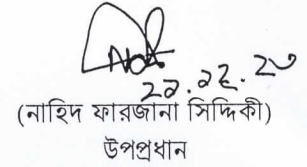 ২১.১২.২৩
(নাহিদ ফারজানা সিদ্দিকী)
উপপ্রধান